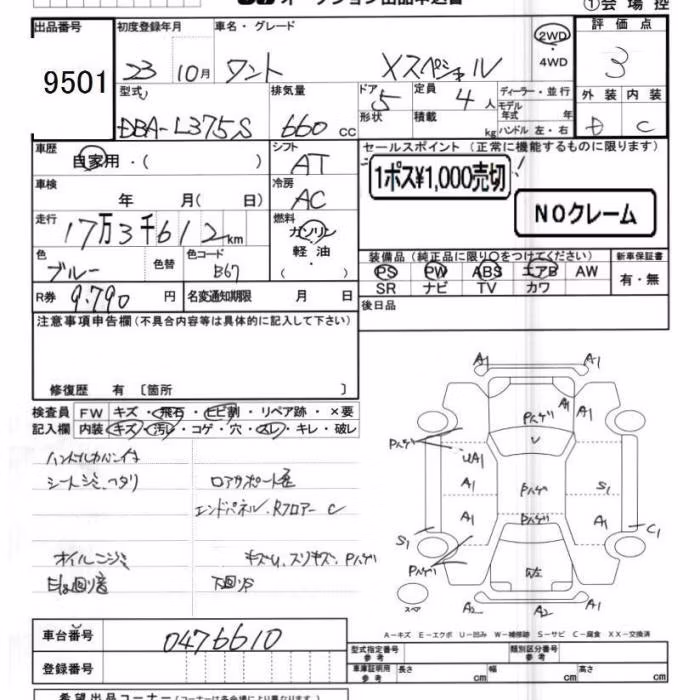 オークション出品申込書
①会場控
出品番号 初度登録年月 車名・グレード 評価点
9501 23 10月 タント Xスペシャル 2WD・4WD 3
型式 排気量 ドア 定員 ディーラー・並行 外装 内装
DBA-L375S 660 cc 5 4人 モデル年式 年 D C
形状 積載 kg ハンドル 左・右
車歴 シフト セールスポイント (正常に機能するものに限ります)
自家用・( ) AT
1ポス¥1,000売切 !
車検 冷房
年 月( 日) AC NOクレーム
走行 燃料
17万3千612km ガソリン・軽油・( )
色 色替 色コード 装備品 (純正品に限り○をつけてください) 新車保証書
ブルー B67 PS PW ABS エアB AW 有・無
SR ナビ TV カワ
R券 9,790円 名変通知期限 月 日 後日品
注意事項申告欄(不具合内容等は具体的に記入して下さい)
修復歴 有 〔箇所 〕
検査員 FW キズ・飛石・ヒビ割・リペア跡・×要
記入欄 内装 キズ・汚レ・コゲ・穴・スレ・キレ・破レ
シートシミ、ヘタリ ロアサポート歪
エンドパネル、Rフロアー C
オイルニジミ キズU、スリキズ、Pハゲ
下回りS
A1 A1
Pハゲ A1 A1
Pハゲ V
UA1
A1 Pハゲ S1
A1 Pハゲ A1
S1 C1
Pハゲ
スペア A2 A2 A1
A-キズ E-エクボ U-凹み W-補修跡 S-サビ C-腐食 XX-交換済
車台番号 0476610 型式指定番号 参考 類別区分番号 参考
登録番号 車庫証明用 参考 長さ cm 幅 cm 高さ cm
希望出品コーナー (コーナーは各会場により異なります)